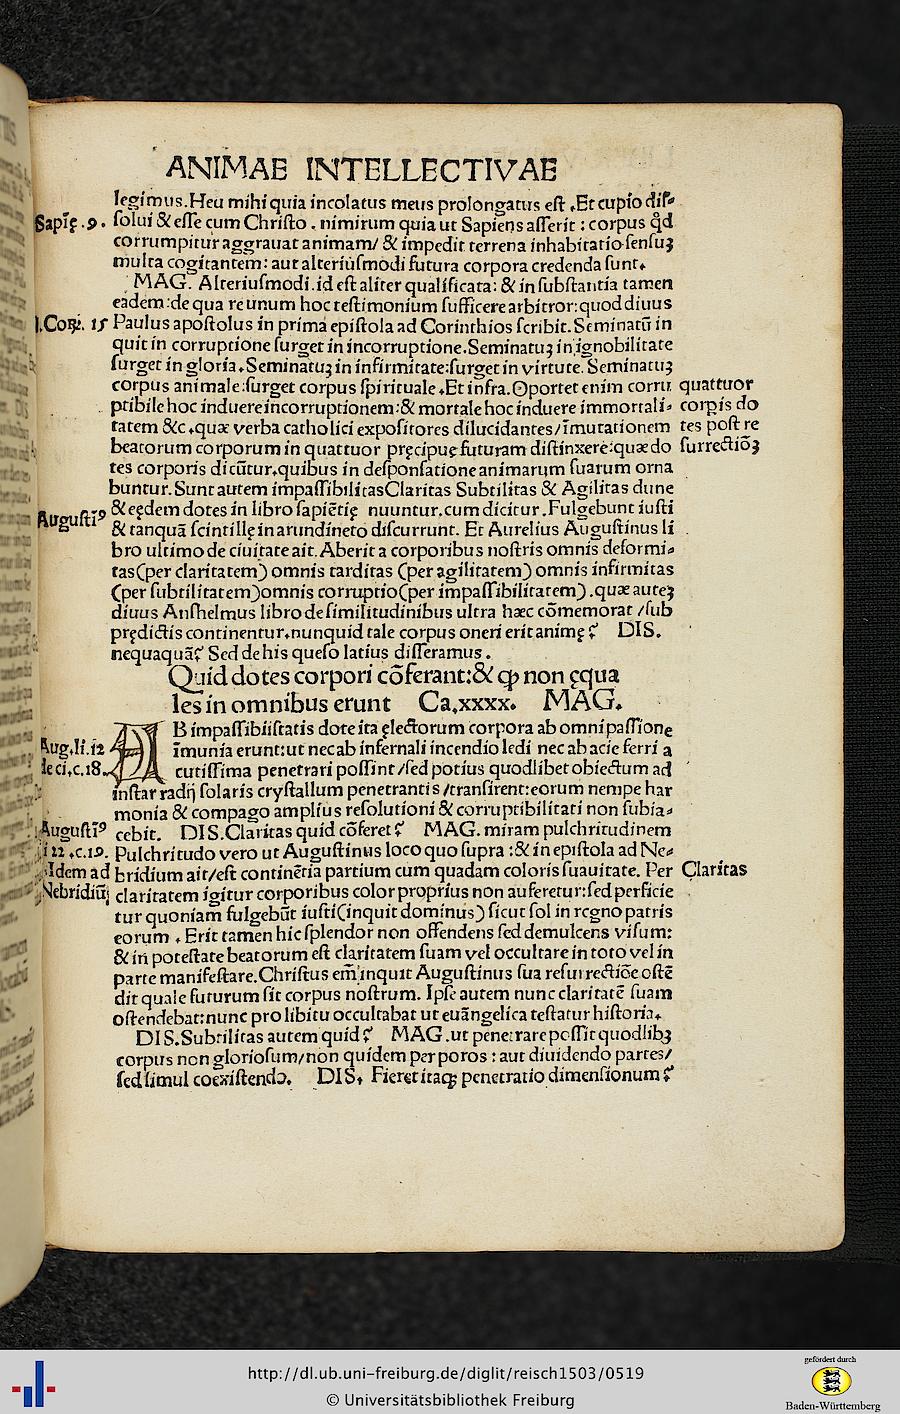 ANIMAE INTELLECTIVAE
legimus.Heu mihi quia incolatus meus prolongatus eſt .Et cupio diſ⸗
Sapię .9. ſolui & eſſe cum Chriſto . nimirum quia ut Sapiens aſſerit : corpus q̃d
corrumpitur aggrauat animam/ & impedit terrena inhabitatio ſenſuꝫ
multa cogitantem: aut alteriuſmodi futura corpora credenda ſunt.
MAG. Alteriuſmodi .id eſt aliter qualificata: & in ſubſtantia tamen
eadem :de qua re unum hoc teſtimonium ſufficere arbitror: quod diuus
I.Coꝝ. 15 Paulus apoſtolus in prima epiſtola ad Corinthios ſcribit. Seminatū in
quit in corruptione ſurget in incorruptione.Seminatuꝫ in ignobilitate
ſurget in gloria.Seminatuꝫ in infirmitate:ſurget in virtute. Seminatuꝫ
corpus animale :ſurget corpus ſpirituale .Et infra. Oportet enim corru
ptibile hoc induere incorruptionem :& mortale hoc induere immortali⸗
tatem &c .quæ verba catholici expoſitores dilucidantes/ īmutationem
beatorum corporum in quattuor pręcipuę futuram diſtinxere:quæ do
quattuor
corꝑis do
tes poſt re
ſurrectiōꝫ
tes corporis dicūtur.quibus in deſponſatione animarum ſuarum orna
buntur. Sunt autem impaſſibilitas Claritas Subtilitas & Agilitas dune
& eędem dotes in libro ſapiētię nuuntur.cum dicitur .Fulgebunt iuſti
Auguſtiꝰ & tanquā ſcintillę in arundineto diſcurrunt. Et Aurelius Auguſtinus li
bro ultimo de ciuitate ait. Aberit a corporibus noſtris omnis deformi⸗
tas(per claritatem) omnis tarditas (per agilitatem) omnis infirmitas
(per ſubtilitatem)omnis corruptio(per impaſſibilitatem) .quæ auteꝫ
diuus Anſhelmus libro de ſimilitudinibus ultra hæc cōmemorat /ſub
prędictis continentur.nunquid tale corpus oneri erit animę ? DIS.
nequaquā? Sed de his queſo latius diſſeramus .
Quid dotes corpori cōferant:& ꝙ non ęqua
les in omnibus erunt Ca.xxxx. MAG.
AB impaſſibiiſtatis dote ita ęlectorum corpora ab omni paſſione
Aug.li.12 īmunia erunt:ut nec ab infernali incendio ledi nec ab acie ferri a
de ci.c.18. cutiſſima penetrari poſſint /ſed potius quodlibet obiectum ad
inſtar radij ſolaris cryſtallum penetrantis /tranſirent:eorum nempe har
monia & compago amplius reſolutioni & corruptibilitati non ſubia⸗
Auguſtiꝰ cebit. DIS.Claritas quid cōferet ? MAG. miram pulchritudinem
li 22 .c.19. Pulchritudo vero ut Auguſtinus loco quo ſupra :& in epiſtola ad Ne⸗
Idem ad bridium ait/eſt continētia partium cum quadam coloris ſuauitate. Per Claritas
Nebridiū claritatem igitur corporibus color proprius non auferetur:ſed perficie
tur quoniam fulgebūt iuſti(inquit dominus) ſicut ſol in regno patris
eorum . Erit tamen hic ſplendor non offendens ſed demulcens viſum:
& in poteſtate beatorum eſt claritatem ſuam vel occultare in toto vel in
parte manifeſtare.Chriſtus em̄ inquit Auguſtinus ſua reſurrectiōe oſtē
dit quale futurum ſit corpus noſtrum. Ipſe autem nunc claritatē ſuam
oſtendebat:nunc pro libitu occultabat ut euāngelica teſtatur hiſtoria.
DIS.Subtilitas autem quid ? MAG .ut penetrare poſſit quodlibꝫ
corpus non glorioſum/non quidem per poros : aut diuidendo partes/
ſed ſimul coexiſtendo. DIS. Fieret itaqꝫ penetratio dimenſionum ?
http://dl.ub.uni-freiburg.de/diglit/reisch1503/0519
© Universitätsbibliothek Freiburg
gefördert durch
Baden-Württemberg